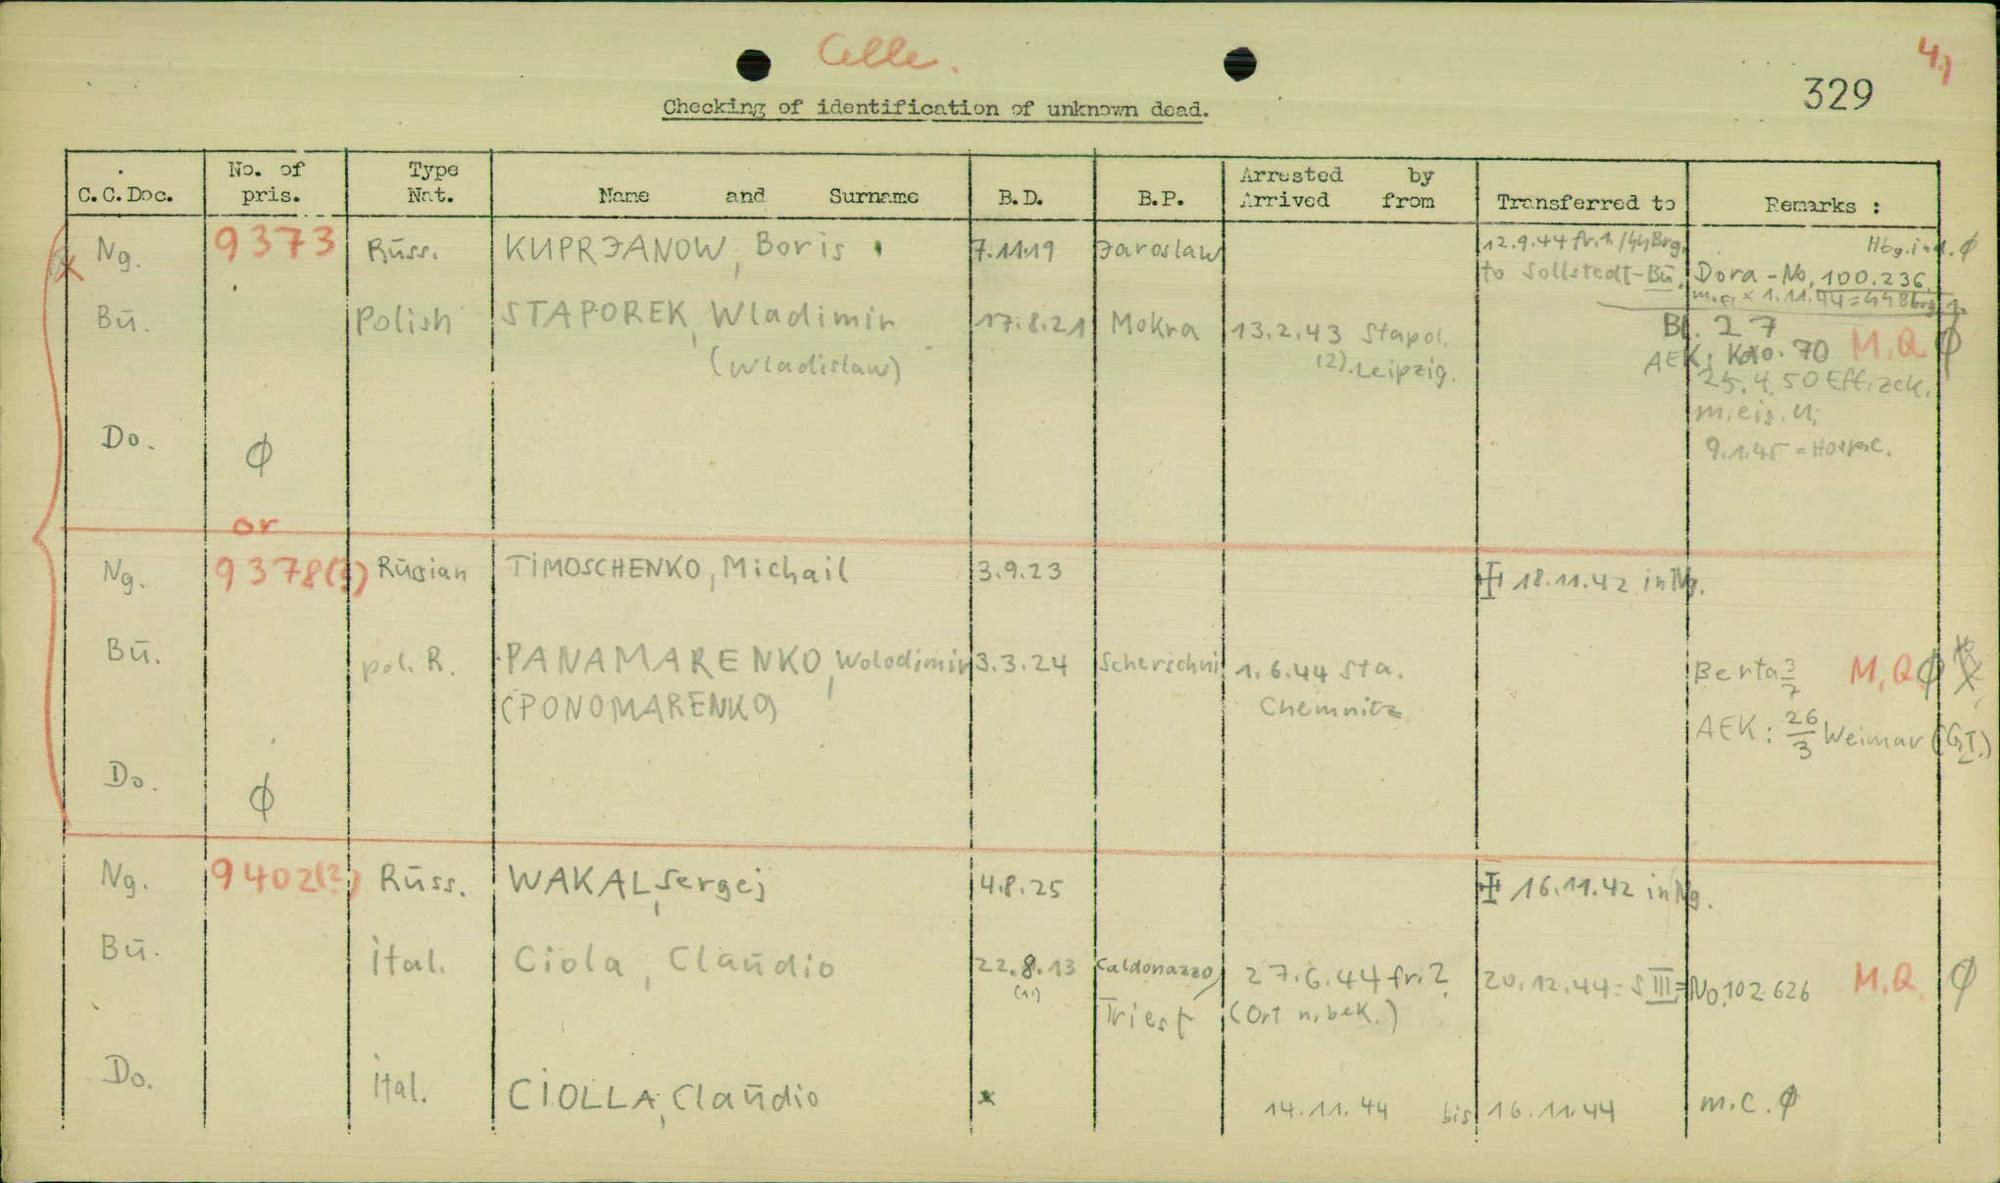 Celle.
4.)
329
Checking of identification of unknown dead.
C.C.Doc. No. of pris. Type Nat. Name and Surname B.D. B.P. Arrested by Arrived from Transferred to Remarks :
Ng. 9373 Rūss. KUPRJANOW, Boris 7.11.19 Jaroslaw 12.9.44 fr. Hbg. Ø
to Sollstedt-Bū. Dora-No. 100.236.
Bū. Polish STAPOREK, Wladimir 17.8.21 Mokra 13.2.43 Stapol. Bl. 27
(Wladislaw) (2) Leipzig. AEK: Kdo. 70 M.Q Ø
25.4.50 Eff. zck.
m. eig. U.
Do. Ø 9.1.45 = Hospl.
or
Ng. 9378(?) Rūssian TIMOSCHENKO, Michail 3.9.23 18.11.42 in Ng.
Bū. pol. R. PANAMARENKO, Wolodimir 3.3.24 Scherschni 1.6.44 Sta. Berta 3/7 M.Q Ø
(PONOMARENKO) Chemnitz AEK: 26/3 Weimar (G.I.)
Do. Ø
Ng. 9402(?) Rūss. WAKAL, Sergej 4.8.25 16.11.42 in Ng.
Bū. ital. Ciola, Claūdio 22.8.13 Caldonazzo 27.6.44 fr.? 20.12.44 = S III = No. 102 626 M.Q. Ø
(1.) Triest (Ort n. bek.)
Do. ital. CIOLLA, Claūdio x 14.11.44 bis 16.11.44 m.c. Ø